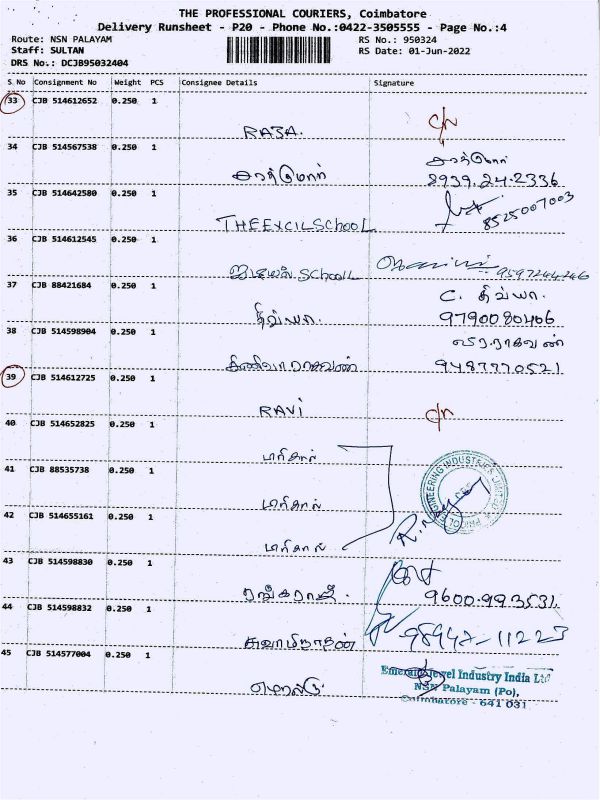 THE PROFESSIONAL COURIERS, Coimbatore
Delivery Runsheet - P20 - Phone No.:0422-3505555 - Page No.:4
Route: NSN PALAYAM RS No.: 950324
Staff: SULTAN RS Date: 01-Jun-2022
DRS No.: DCJB95032404
S No Consignment No Weight PCS Consignee Details Signature
33 CJB 514612652 0.250 1
RAJA. C/N
34 CJB 514567538 0.250 1
8939.24.2336
35 CJB 514642580 0.250 1
THE EXCIL SCHOOL 8525007003
36 CJB 514612545 0.250 1
SCHOOL 9597244246
37 CJB 88421684 0.250 1
திவ்யா. C. திவ்யா.
9790080406
38 CJB 514598904 0.250 1
வீரராகவன்
9487770521
39 CJB 514612725 0.250 1
RAVI C/N
40 CJB 514652825 0.250 1
பிரிகால்
41 CJB 88535738 0.250 1
பிரிகால்
42 CJB 514655161 0.250 1
பிரிகால்
43 CJB 514598830 0.250 1
ரங்கராஜ். 9600.993531
44 CJB 514598832 0.250 1
சுவாமிநாதன் 98942-11223
45 CJB 514577004 0.250 1
எமரால்டு
Emerald Jewel Industry India Ltd
NSN Palayam (Po),
Coimbatore - 641 031